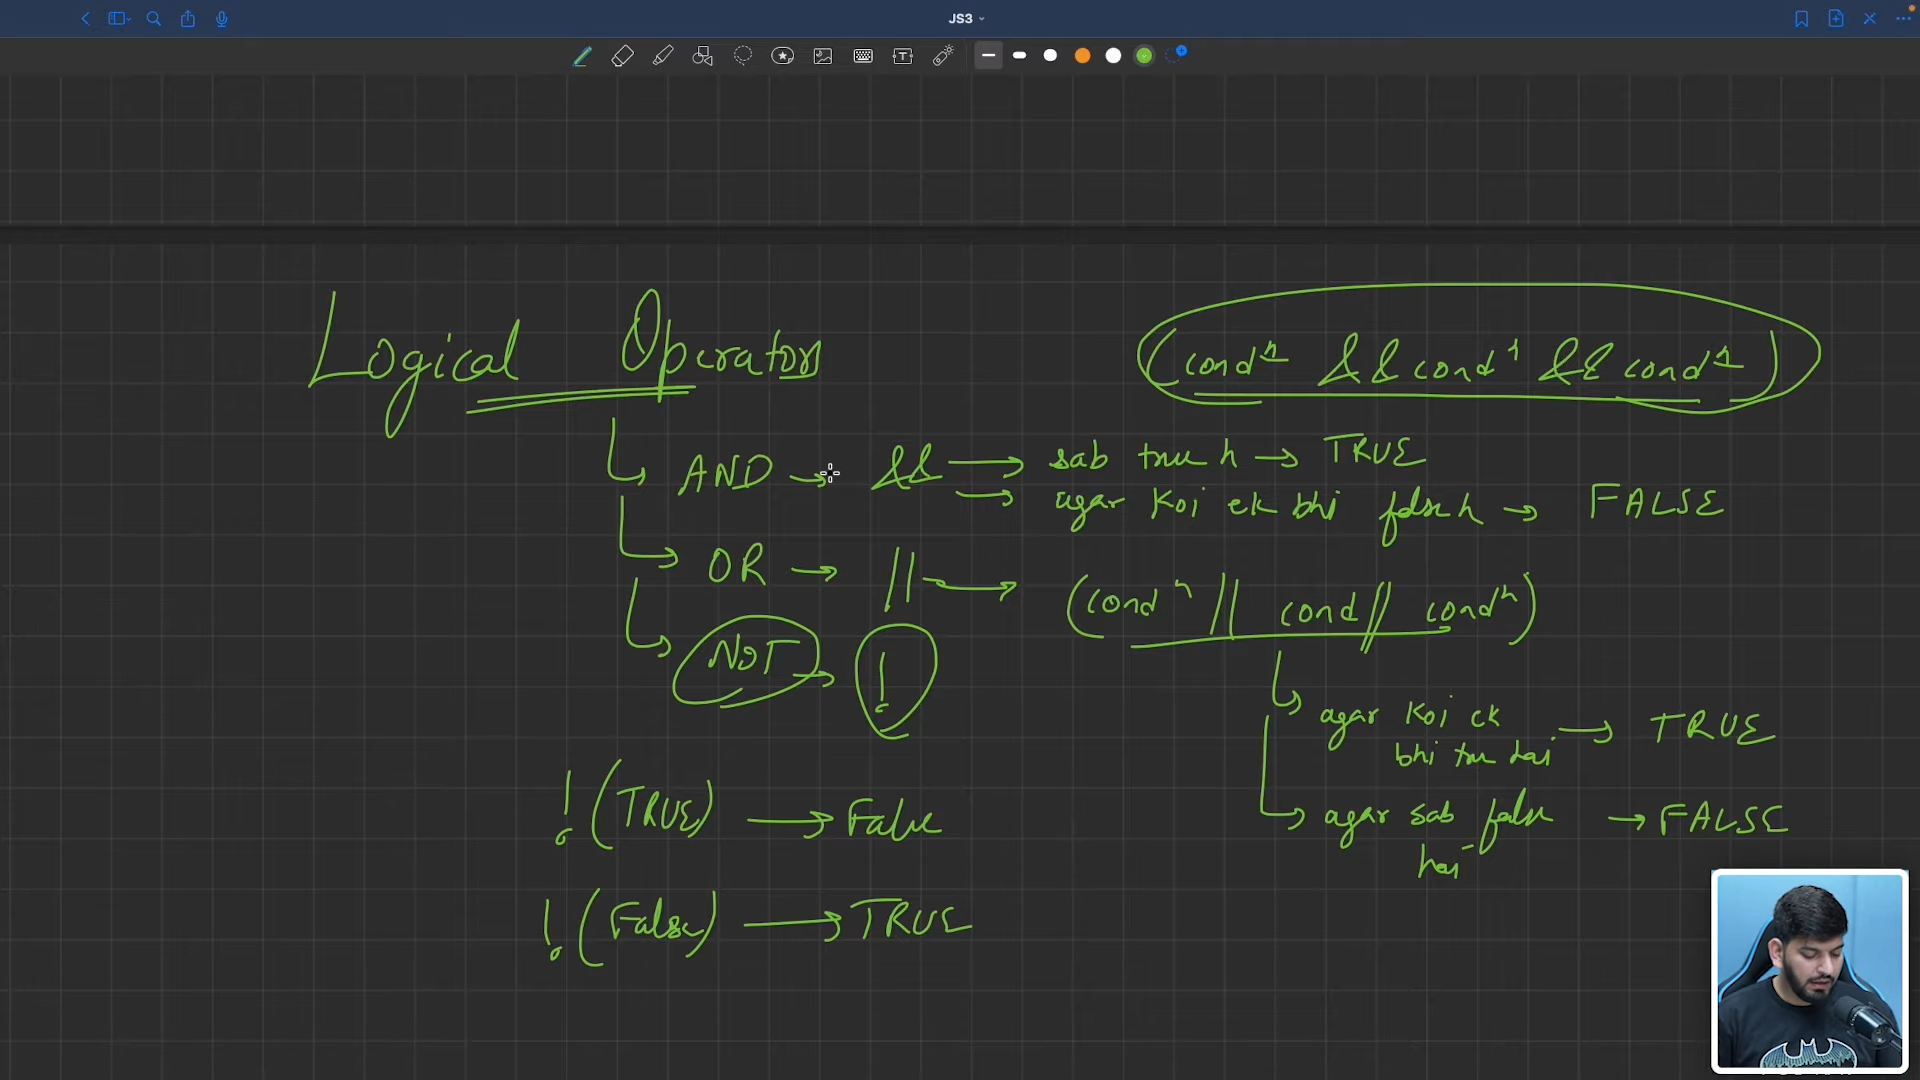 JS3
Logical Operators
(condⁿ && condⁿ && condⁿ)
AND → && → sab true h → TRUE
→ agar koi ek bhi false h → FALSE
OR → || → (condⁿ || cond || condⁿ)
NOT → !
agar koi ek
bhi true hai → TRUE
!(TRUE) → False
agar sab false → FALSE
hai
!(False) → TRUE